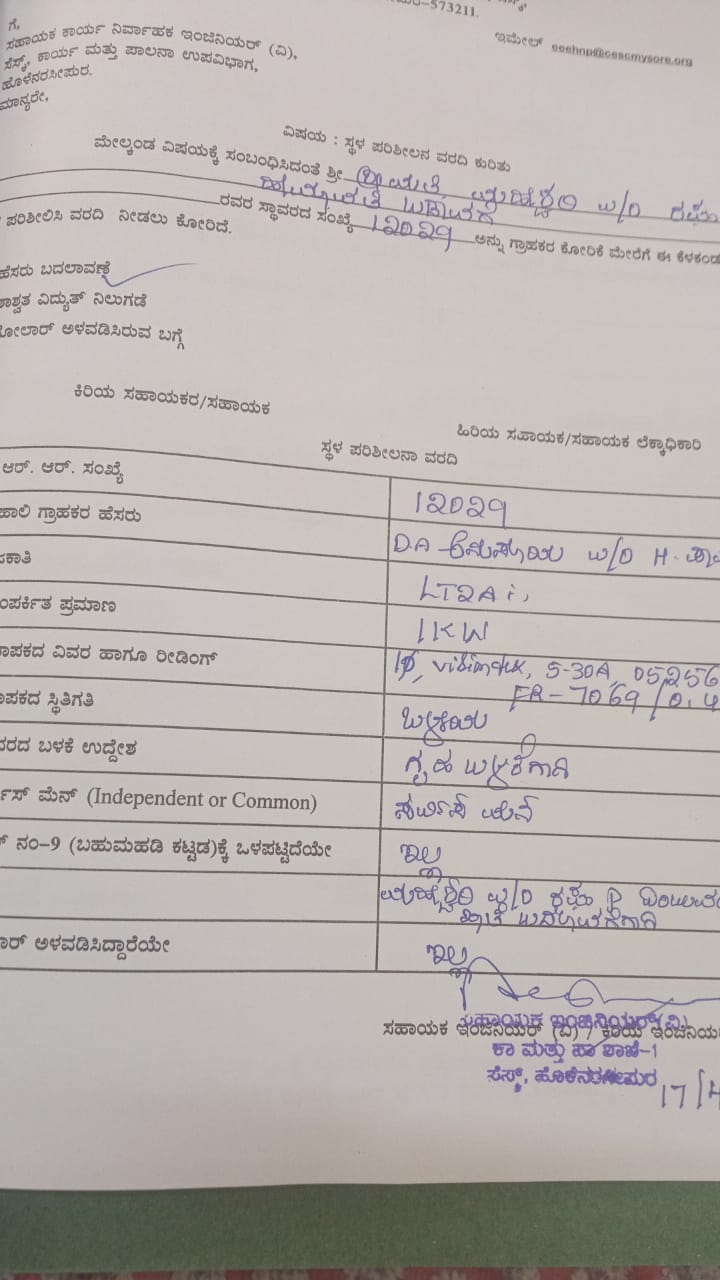 -573211.
ಇಮೇಲ್ eeehnp@cescmysore.org
ಗೆ,
ಸಹಾಯಕ ಕಾರ್ಯ ನಿರ್ವಾಹಕ ಇಂಜಿನಿಯರ್ (ವಿ),
ಸೆಸ್ಕ್, ಕಾರ್ಯ ಮತ್ತು ಪಾಲನಾ ಉಪವಿಭಾಗ,
ಹೊಳೆನರಸೀಪುರ.
ಮಾನ್ಯರೇ,
ವಿಷಯ : ಸ್ಥಳ ಪರಿಶೀಲನ ವರದಿ ಕುರಿತು
ಮೇಲ್ಕಂಡ ವಿಷಯಕ್ಕೆ ಸಂಬಂಧಿಸಿದಂತೆ ಶ್ರೀ W/O
ರವರ ಸ್ಥಾವರದ ಸಂಖ್ಯೆ 12029 ಅನ್ನು ಗ್ರಾಹಕರ ಕೋರಿಕೆ ಮೇರೆಗೆ ಈ ಕೆಳಕಂಡ
ಪರಿಶೀಲಿಸಿ ವರದಿ ನೀಡಲು ಕೋರಿದೆ.
ಹೆಸರು ಬದಲಾವಣೆ
ಶಾಶ್ವತ ವಿದ್ಯುತ್ ನಿಲುಗಡೆ
ಸೋಲಾರ್ ಅಳವಡಿಸಿರುವ ಬಗ್ಗೆ
ಕಿರಿಯ ಸಹಾಯಕರ/ಸಹಾಯಕ
ಹಿರಿಯ ಸಹಾಯಕ/ಸಹಾಯಕ ಲೆಕ್ಕಾಧಿಕಾರಿ
ಸ್ಥಳ ಪರಿಶೀಲನಾ ವರದಿ
ಆರ್. ಆರ್. ಸಂಖ್ಯೆ 12029
ಹಾಲಿ ಗ್ರಾಹಕರ ಹೆಸರು DA W/O H.
ಜಕಾತಿ LT2Ai,
ಸಂಪರ್ಕಿತ ಪ್ರಮಾಣ 1KW
ಮಾಪಕದ ವಿವರ ಹಾಗೂ ರೀಡಿಂಗ್ 1Φ, 5-30A, 05256
FR-7069/0.4
ಮಾಪಕದ ಸ್ಥಿತಿಗತಿ ಒಳ್ಳೆಯ
ಬಳಕೆ ಉದ್ದೇಶ ಗೃಹ ಬಳಕೆಗಾಗಿ
ಮೆನ್ (Independent or Common) ಸರ್ವಿಸ್ ಮೇನ್
ನಂ-9 (ಬಹುಮಹಡಿ ಕಟ್ಟಡ)ಕ್ಕೆ ಒಳಪಟ್ಟಿದೆಯೇ ಇಲ್ಲ
W/O P
ಅಳವಡಿಸಿದ್ದಾರೆಯೇ ಇಲ್ಲ
ಸಹಾಯಕ ಇಂಜಿನಿಯರ್ (ವಿ)
ಸಹಾಯಕ ಇಂಜಿನಿಯರ್ (ವಿ) / ಕಿರಿಯ ಇಂಜಿನಿಯ
ಕಾ ಮತ್ತು ಪಾ ಶಾಖೆ-1
ಸೆಸ್ಕ್, ಹೊಳೆನರಸೀಪುರ
17/4